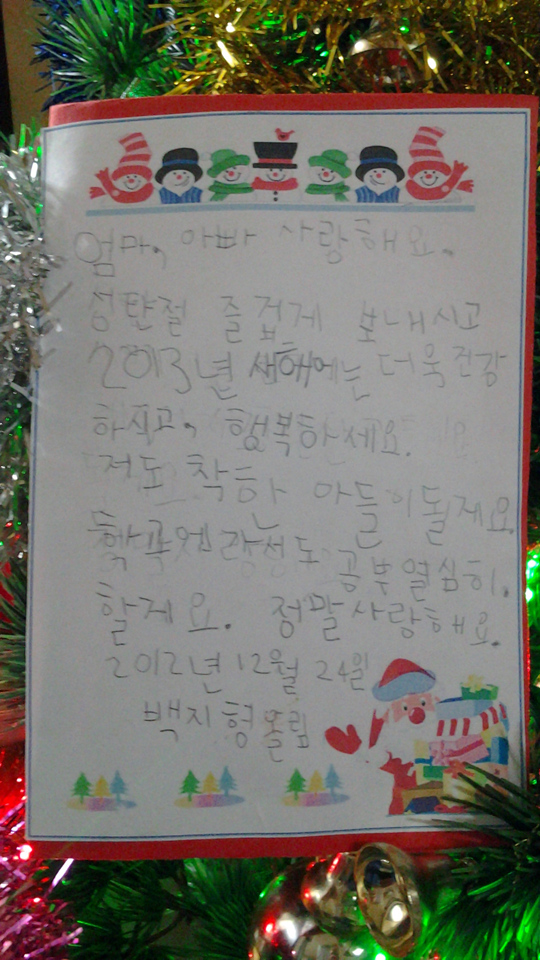 엄마, 아빠 사랑해요.
성탄절 즐겁게 보내시고
2013년 새해에는 더욱건강
하시고, 행복하세요.
저도 착한 아들이될게요.
공부 열심히.
할게요. 정말사랑해요.
2012년 12월 24일
백지형올림